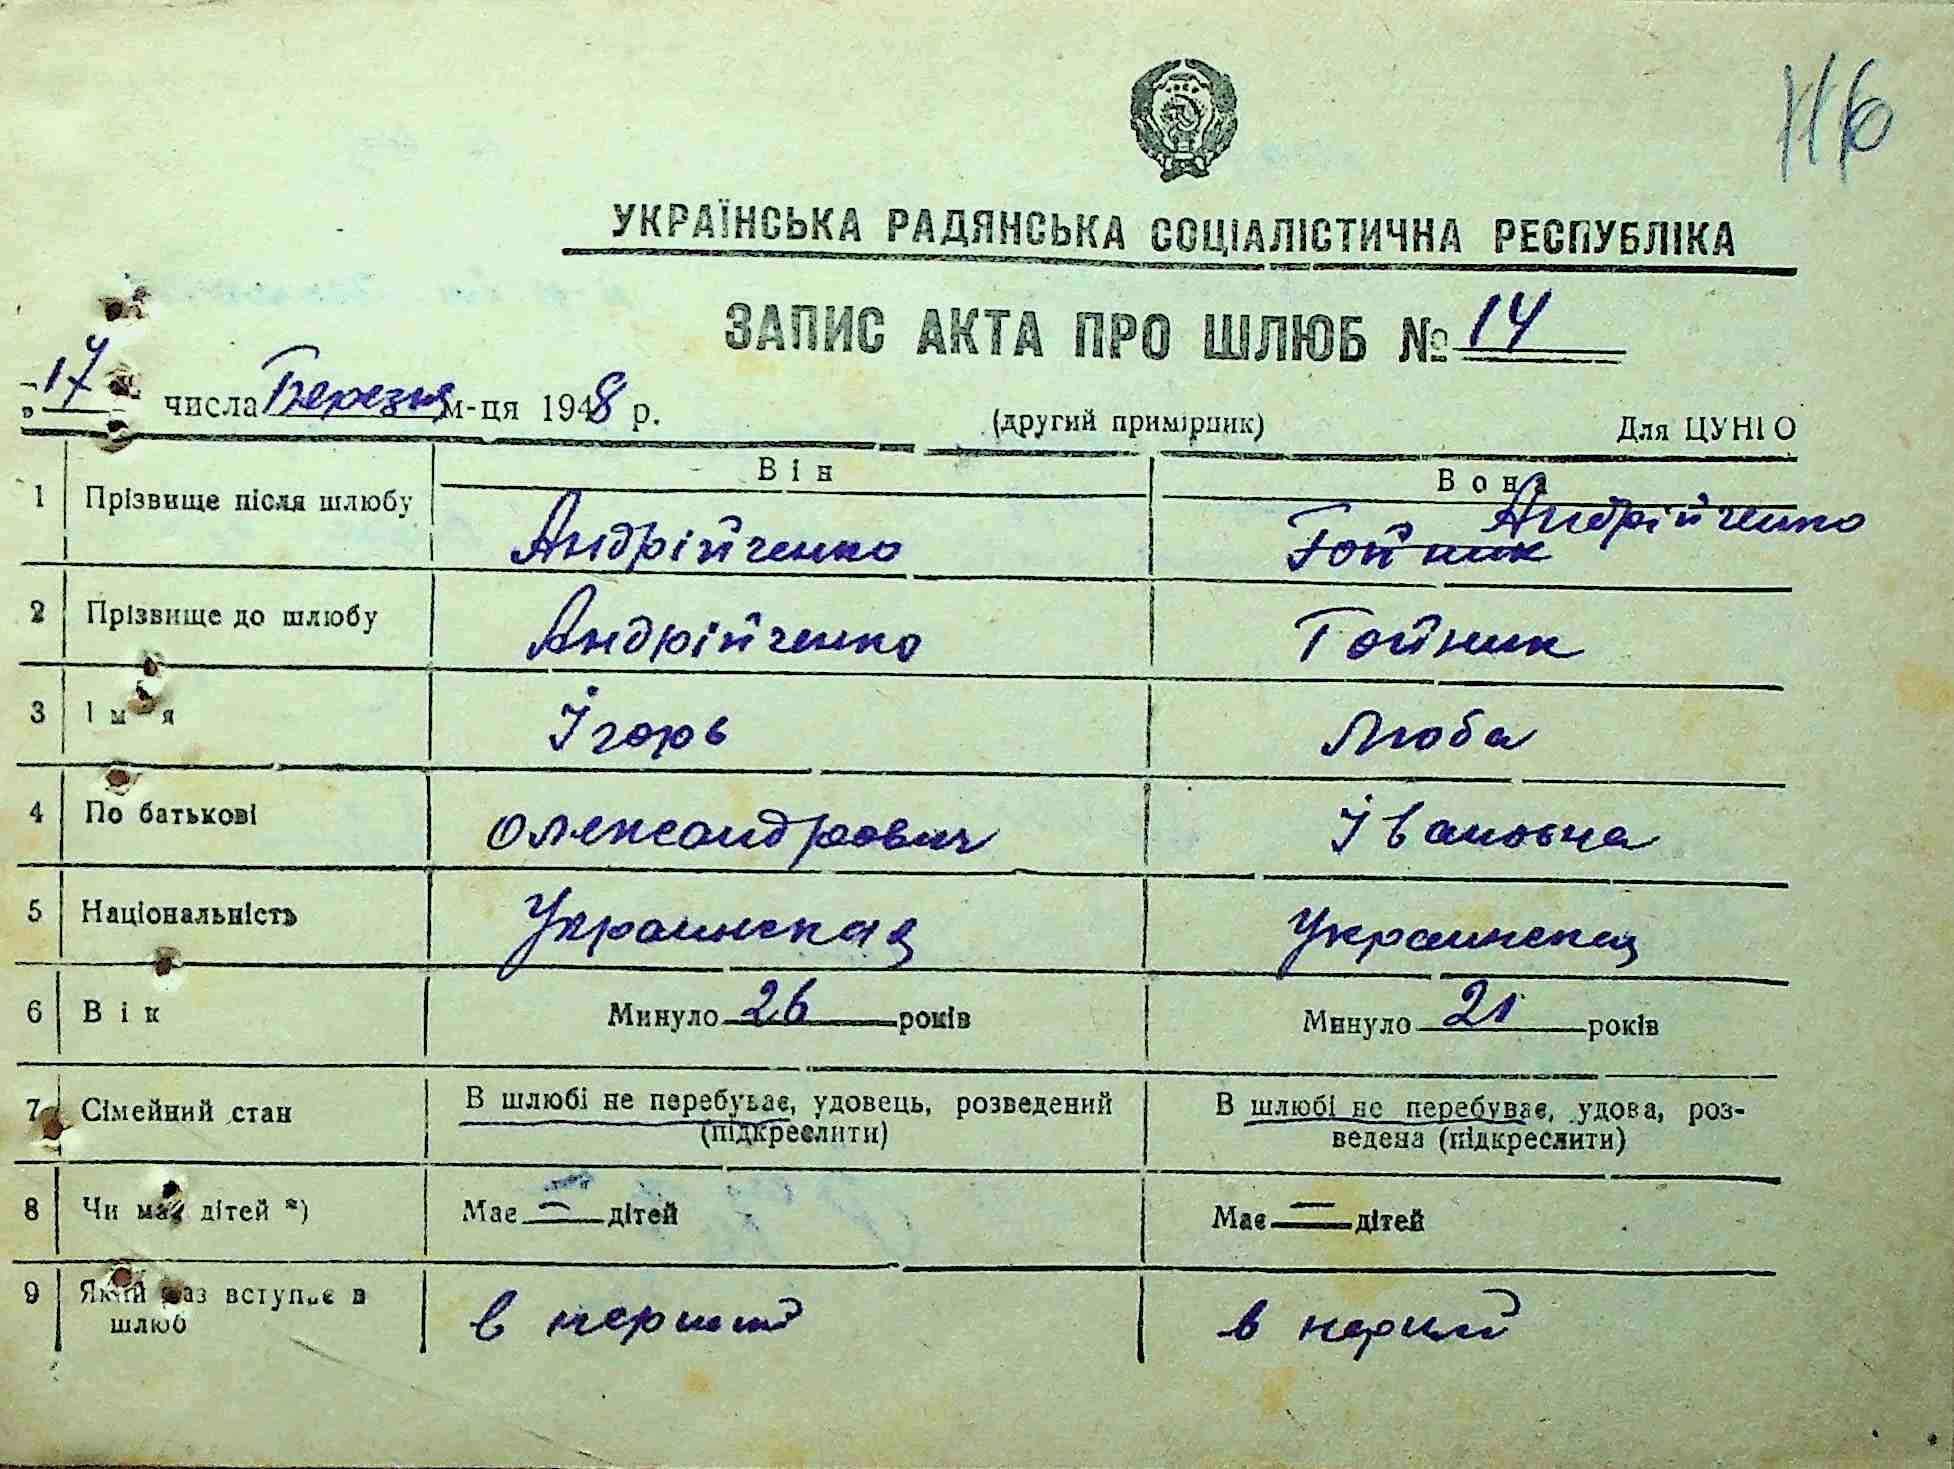 116
УКРАЇНСЬКА РАДЯНСЬКА СОЦІАЛІСТИЧНА РЕСПУБЛІКА
ЗАПИС АКТА ПРО ШЛЮБ № 14
„17" числа Березня м-ця 1948 р.
(другий примірник) Для ЦУНІО
Він Вона
1 Прізвище після шлюбу Андрійченко Гойник Андрійченко
2 Прізвище до шлюбу Андрійченко Гойник
3 Ім'я Ігорь Люба
4 По батькові Олександрович Івановна
5 Національність Украинская Украинская
6 Вік Минуло 26 років Минуло 21 років
7 Сімейний стан В шлюбі не перебуває, удовець, розведений (підкреслити) В шлюбі не перебуває, удова, роз-
ведена (підкреслити)
8 Чи має дітей *) Має — дітей Має — дітей
9 Який раз вступає в шлюб в перший в перший